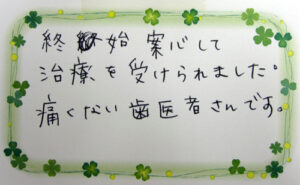 終始安心して
治療を受けられました。
痛くない歯医者さんです。